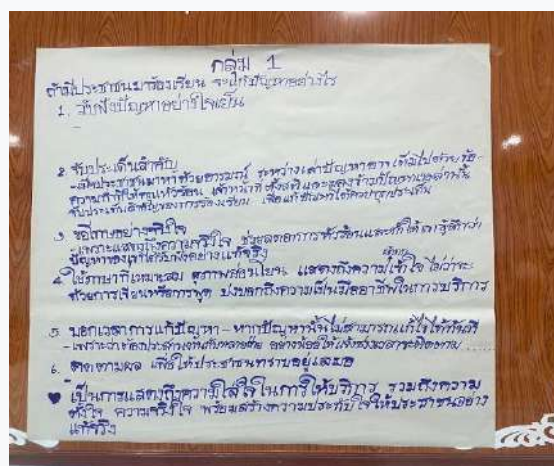 กลุ่ม 1
ถ้ามีประชาชนมาร้องเรียน จะแก้ปัญหาอย่างไร
1. รับฟังปัญหาอย่างใจเย็น
2. จับประเด็นสำคัญ
- เมื่อประชาชนมาหาด้วยอารมณ์ ระหว่างเล่าปัญหาอาจเต็มไปด้วย
ความ เจ้าหน้าที่ต้อง และ
จับประเด็นสำคัญของการร้องเรียน เพื่อแก้ปัญหาได้ตรงประเด็น
3. ขอโทษอย่างจริงใจ
- เพราะแสดงถึงความจริงใจ ช่วยลดอาการหัวร้อนและทำให้เขารู้สึกว่า
ปัญหาของเขาได้รับฟังอย่างแท้จริง
4. ใช้ภาษาที่เหมาะสม สุภาพอ่อนโยน แสดงถึงความเข้าใจ ไม่ว่าจะ
ด้วยการเขียนหรือการพูด บ่งบอกถึงความเป็นมืออาชีพในการบริการ
5. บอกเวลาการแก้ปัญหา - หากปัญหานั้นไม่สามารถแก้ไขได้ทันที
- เพราะว่าต้องประสานงานกับหลายฝ่าย อย่างน้อยให้แจ้งช่วงเวลาจะติดตาม
6. ติดตามผล เพื่อให้ประชาชนทราบอยู่เสมอ
เป็นการแสดงถึงความใส่ใจในการให้บริการ รวมถึงความ
ตั้งใจ ความจริงใจ พร้อมสร้างความประทับใจให้ประชาชนอย่าง
แท้จริง